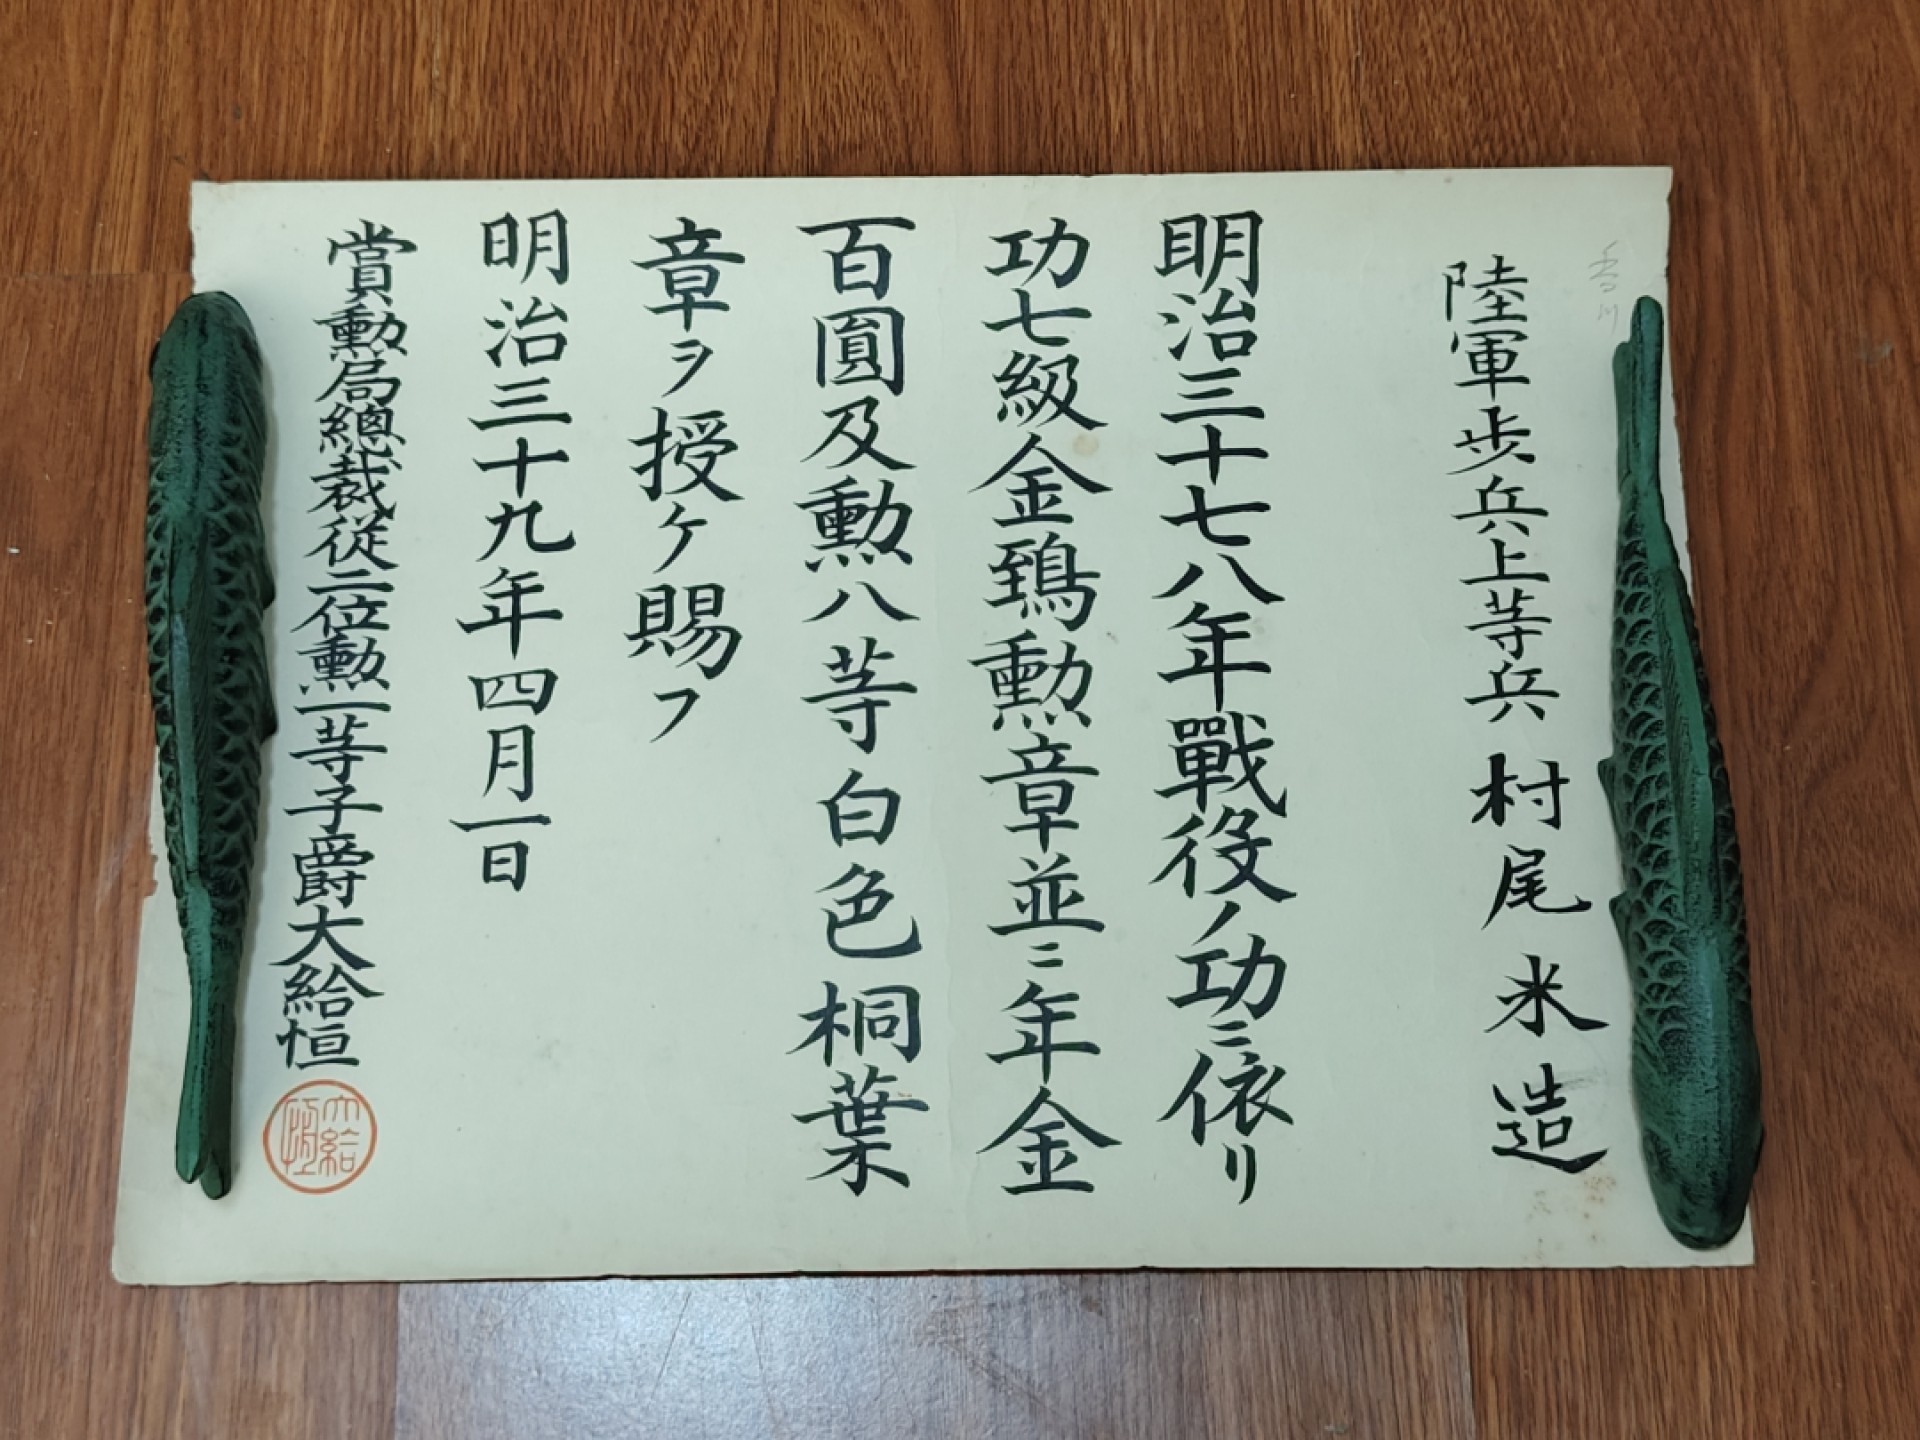 陸軍歩兵上等兵 村尾米造
明治三十七八年戰役ノ功ニ依リ
功七級金鵄勲章並ニ年金
百圓及勲八等白色桐葉
章ヲ授ケ賜フ
明治三十九年四月一日
賞勲局總裁従二位勲一等子爵大給恒